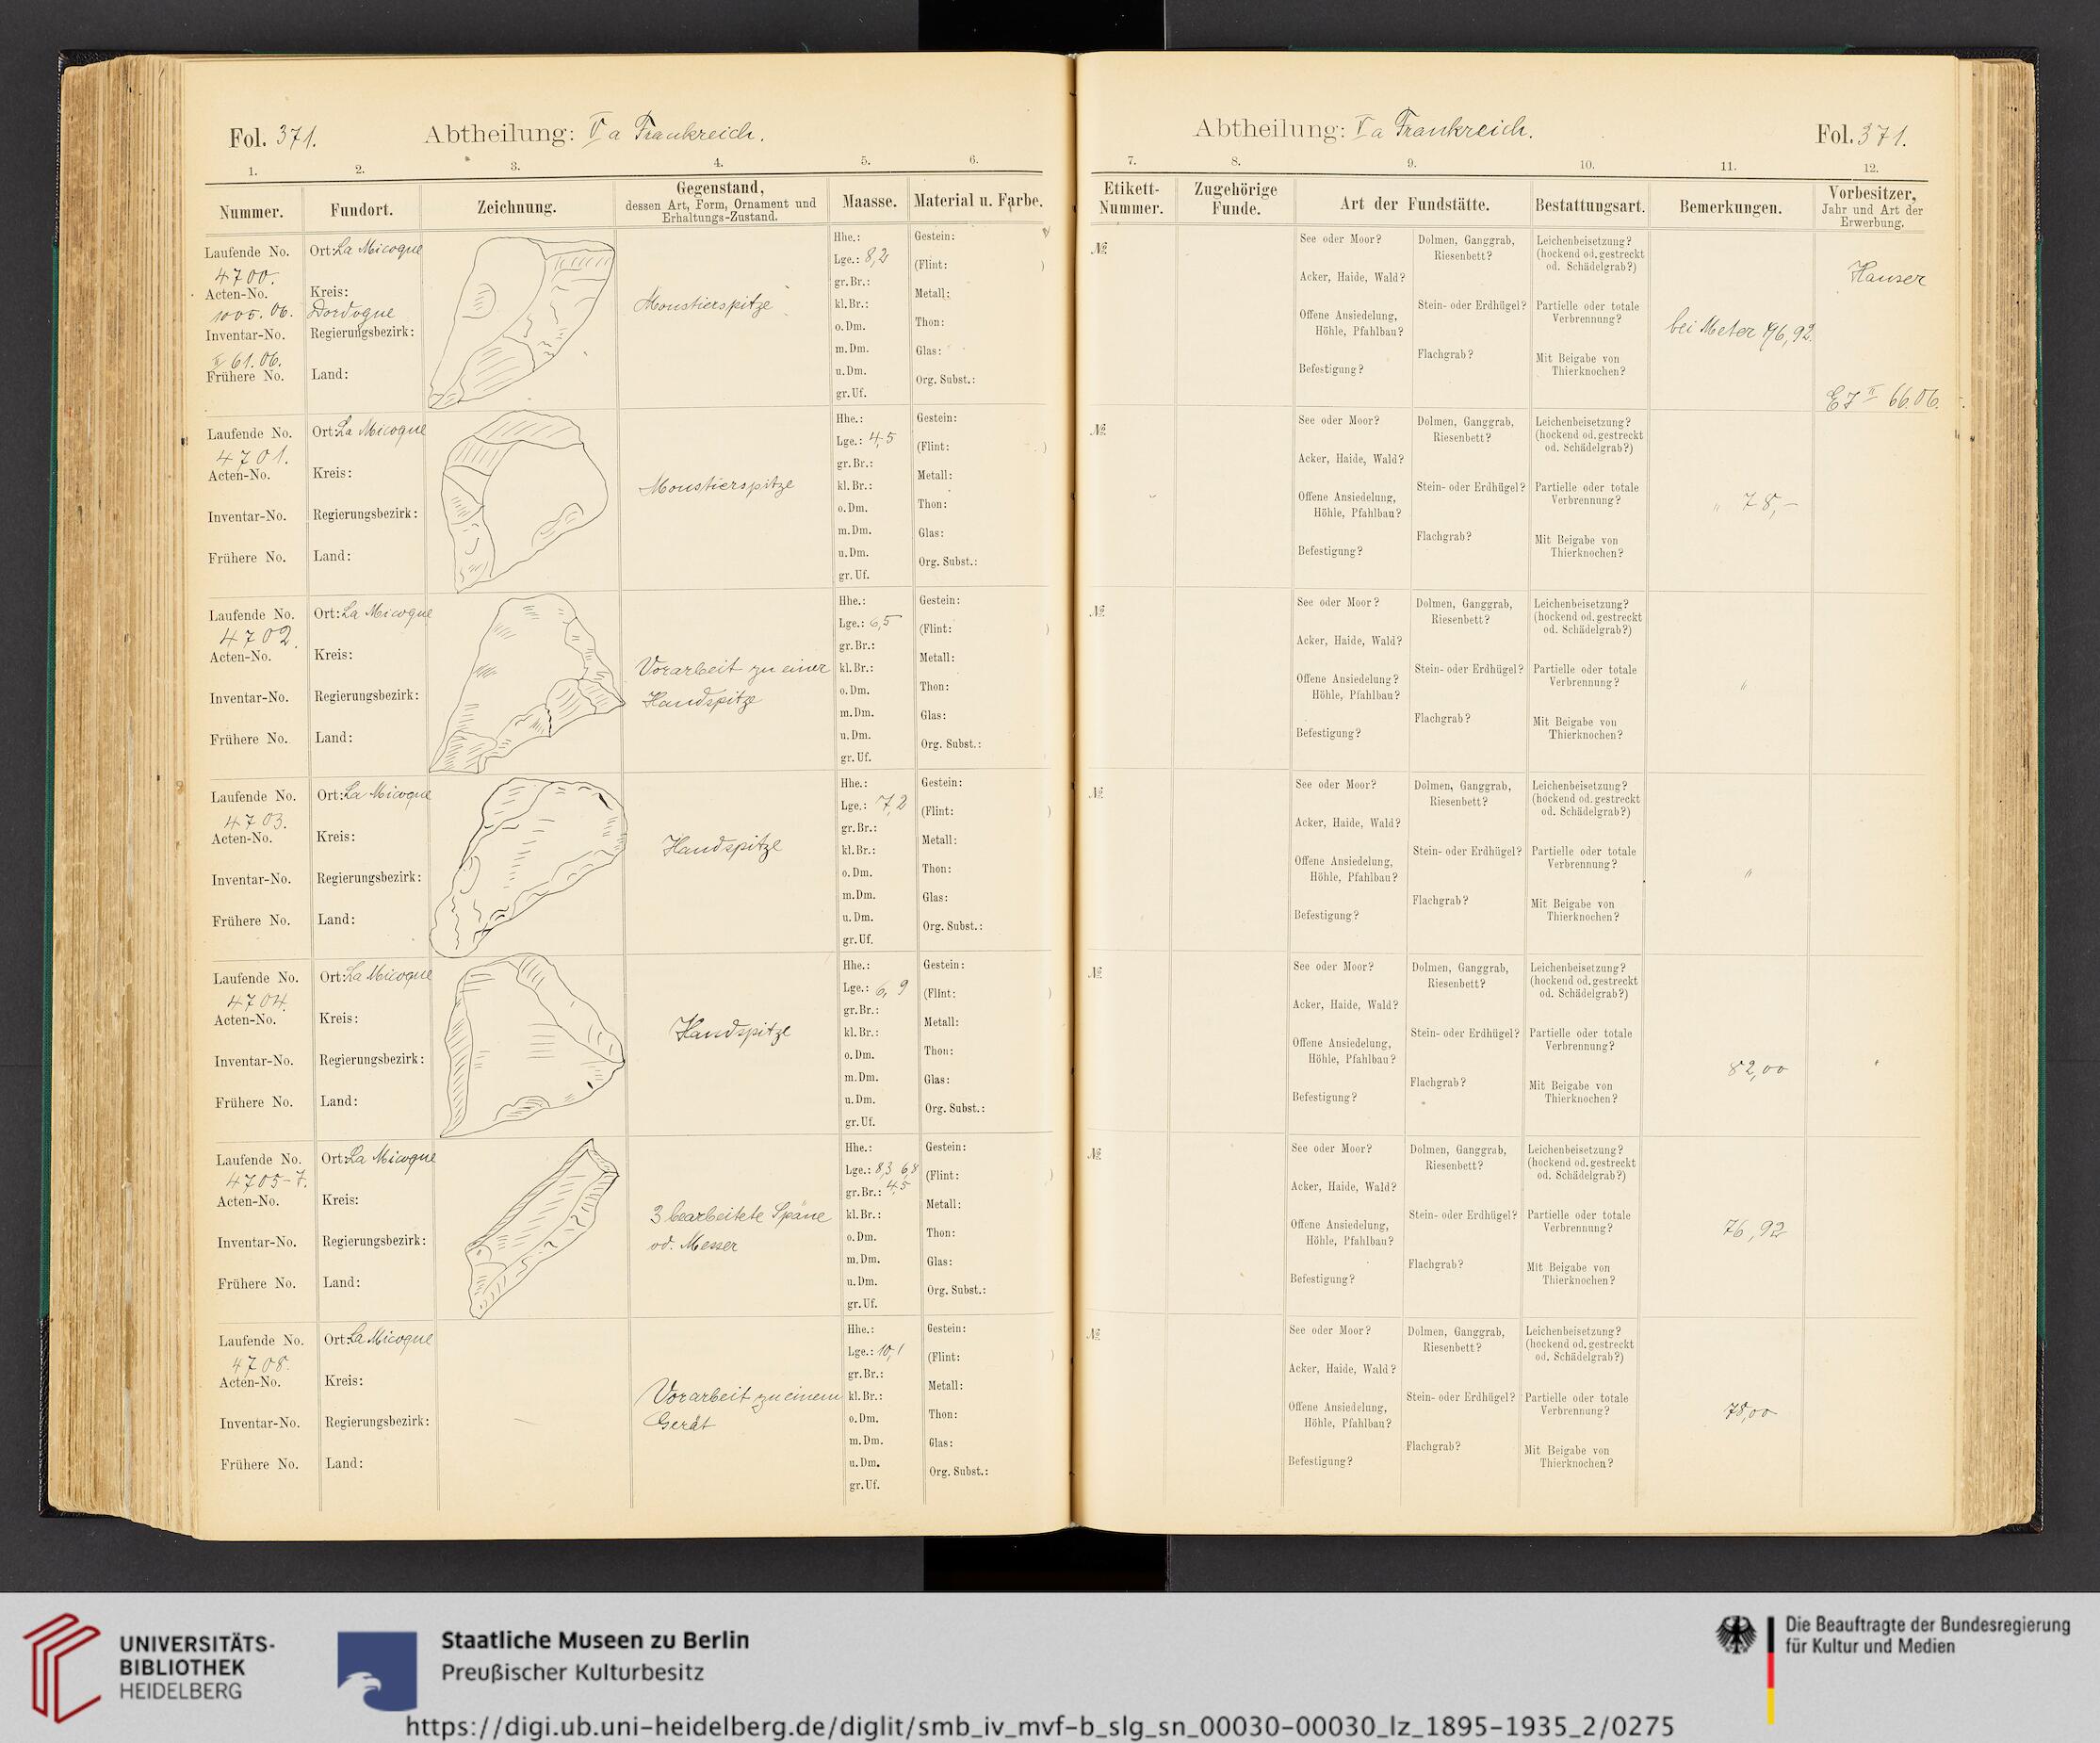 Fol. 371.
Abtheilung: V a Frankreich.
1. 2. 3. 4. 5. 6.
Nummer. Fundort. Zeichnung. Gegenstand, dessen Art, Form, Ornament und Erhaltungs-Zustand. Maasse. Material u. Farbe.
Laufende No. 4700.
Acten-No. 1005. 06.
Inventar-No. II 61. 06.
Frühere No.
Ort: La Micoque
Kreis: Dordogne
Regierungsbezirk:
Land:
Moustierspitze
Hhe.:
Lge.: 8,2
gr. Br.:
kl. Br.:
o. Dm.
m. Dm.
u. Dm.
gr. Uf.
Gestein:
(Flint: )
Metall:
Thon:
Glas:
Org. Subst.:
Laufende No. 4701.
Acten-No.
Inventar-No.
Frühere No.
Ort: La Micoque
Kreis:
Regierungsbezirk:
Land:
Moustierspitze
Hhe.:
Lge.: 4,5
gr. Br.:
kl. Br.:
o. Dm.
m. Dm.
u. Dm.
gr. Uf.
Gestein:
(Flint: )
Metall:
Thon:
Glas:
Org. Subst.:
Laufende No. 4702.
Acten-No.
Inventar-No.
Frühere No.
Ort: La Micoque
Kreis:
Regierungsbezirk:
Land:
Vorarbeit zu einer
Handspitze
Hhe.:
Lge.: 6,5
gr. Br.:
kl. Br.:
o. Dm.
m. Dm.
u. Dm.
gr. Uf.
Gestein:
(Flint: )
Metall:
Thon:
Glas:
Org. Subst.:
Laufende No. 4703.
Acten-No.
Inventar-No.
Frühere No.
Ort: La Micoque
Kreis:
Regierungsbezirk:
Land:
Handspitze
Hhe.:
Lge.: 7,2
gr. Br.:
kl. Br.:
o. Dm.
m. Dm.
u. Dm.
gr. Uf.
Gestein:
(Flint: )
Metall:
Thon:
Glas:
Org. Subst.:
Laufende No. 4704.
Acten-No.
Inventar-No.
Frühere No.
Ort: La Micoque
Kreis:
Regierungsbezirk:
Land:
Handspitze
Hhe.:
Lge.: 6,9
gr. Br.:
kl. Br.:
o. Dm.
m. Dm.
u. Dm.
gr. Uf.
Gestein:
(Flint: )
Metall:
Thon:
Glas:
Org. Subst.:
Laufende No. 4705-7.
Acten-No.
Inventar-No.
Frühere No.
Ort: La Micoque
Kreis:
Regierungsbezirk:
Land:
3 bearbeitete Späne
od. Messer
Hhe.:
Lge.: 8,3 6,8
gr. Br.: 4,5
kl. Br.:
o. Dm.
m. Dm.
u. Dm.
gr. Uf.
Gestein:
(Flint: )
Metall:
Thon:
Glas:
Org. Subst.:
Laufende No. 4708.
Acten-No.
Inventar-No.
Frühere No.
Ort: La Micoque
Kreis:
Regierungsbezirk:
Land:
Vorarbeit zu einem
Gerät
Hhe.:
Lge.: 10,1
gr. Br.:
kl. Br.:
o. Dm.
m. Dm.
u. Dm.
gr. Uf.
Gestein:
(Flint: )
Metall:
Thon:
Glas:
Org. Subst.:
Abtheilung: V a Frankreich.
Fol. 371.
7. 8. 9. 10. 11. 12.
Etikett-Nummer. Zugehörige Funde. Art der Fundstätte. Bestattungsart. Bemerkungen. Vorbesitzer, Jahr und Art der Erwerbung.
№
See oder Moor?
Acker, Haide, Wald?
Offene Ansiedelung,
Höhle, Pfahlbau?
Befestigung?
Dolmen, Ganggrab,
Riesenbett?
Stein- oder Erdhügel?
Flachgrab?
Leichenbeisetzung?
(hockend od. gestreckt
od. Schädelgrab?)
Partielle oder totale
Verbrennung?
Mit Beigabe von
Thierknochen?
bei Meter 76,92.
Hauser
E J II 66.06.
№
See oder Moor?
Acker, Haide, Wald?
Offene Ansiedelung,
Höhle, Pfahlbau?
Befestigung?
Dolmen, Ganggrab,
Riesenbett?
Stein- oder Erdhügel?
Flachgrab?
Leichenbeisetzung?
(hockend od. gestreckt
od. Schädelgrab?)
Partielle oder totale
Verbrennung?
Mit Beigabe von
Thierknochen?
" 78,-
№
See oder Moor?
Acker, Haide, Wald?
Offene Ansiedelung?
Höhle, Pfahlbau?
Befestigung?
Dolmen, Ganggrab,
Riesenbett?
Stein- oder Erdhügel?
Flachgrab?
Leichenbeisetzung?
(hockend od. gestreckt
od. Schädelgrab?)
Partielle oder totale
Verbrennung?
Mit Beigabe von
Thierknochen?
"
№
See oder Moor?
Acker, Haide, Wald?
Offene Ansiedelung,
Höhle, Pfahlbau?
Befestigung?
Dolmen, Ganggrab,
Riesenbett?
Stein- oder Erdhügel?
Flachgrab?
Leichenbeisetzung?
(hockend od. gestreckt
od. Schädelgrab?)
Partielle oder totale
Verbrennung?
Mit Beigabe von
Thierknochen?
"
№
See oder Moor?
Acker, Haide, Wald?
Offene Ansiedelung,
Höhle, Pfahlbau?
Befestigung?
Dolmen, Ganggrab,
Riesenbett?
Stein- oder Erdhügel?
Flachgrab?
Leichenbeisetzung?
(hockend od. gestreckt
od. Schädelgrab?)
Partielle oder totale
Verbrennung?
Mit Beigabe von
Thierknochen?
82,00
№
See oder Moor?
Acker, Haide, Wald?
Offene Ansiedelung,
Höhle, Pfahlbau?
Befestigung?
Dolmen, Ganggrab,
Riesenbett?
Stein- oder Erdhügel?
Flachgrab?
Leichenbeisetzung?
(hockend od. gestreckt
od. Schädelgrab?)
Partielle oder totale
Verbrennung?
Mit Beigabe von
Thierknochen?
76,92
№
See oder Moor?
Acker, Haide, Wald?
Offene Ansiedelung,
Höhle, Pfahlbau?
Befestigung?
Dolmen, Ganggrab,
Riesenbett?
Stein- oder Erdhügel?
Flachgrab?
Leichenbeisetzung?
(hockend od. gestreckt
od. Schädelgrab?)
Partielle oder totale
Verbrennung?
Mit Beigabe von
Thierknochen?
78,00
UNIVERSITÄTS-
BIBLIOTHEK
HEIDELBERG
Staatliche Museen zu Berlin
Preußischer Kulturbesitz
Die Beauftragte der Bundesregierung
für Kultur und Medien
https://digi.ub.uni-heidelberg.de/diglit/smb_iv_mvf-b_slg_sn_00030-00030_lz_1895-1935_2/0275